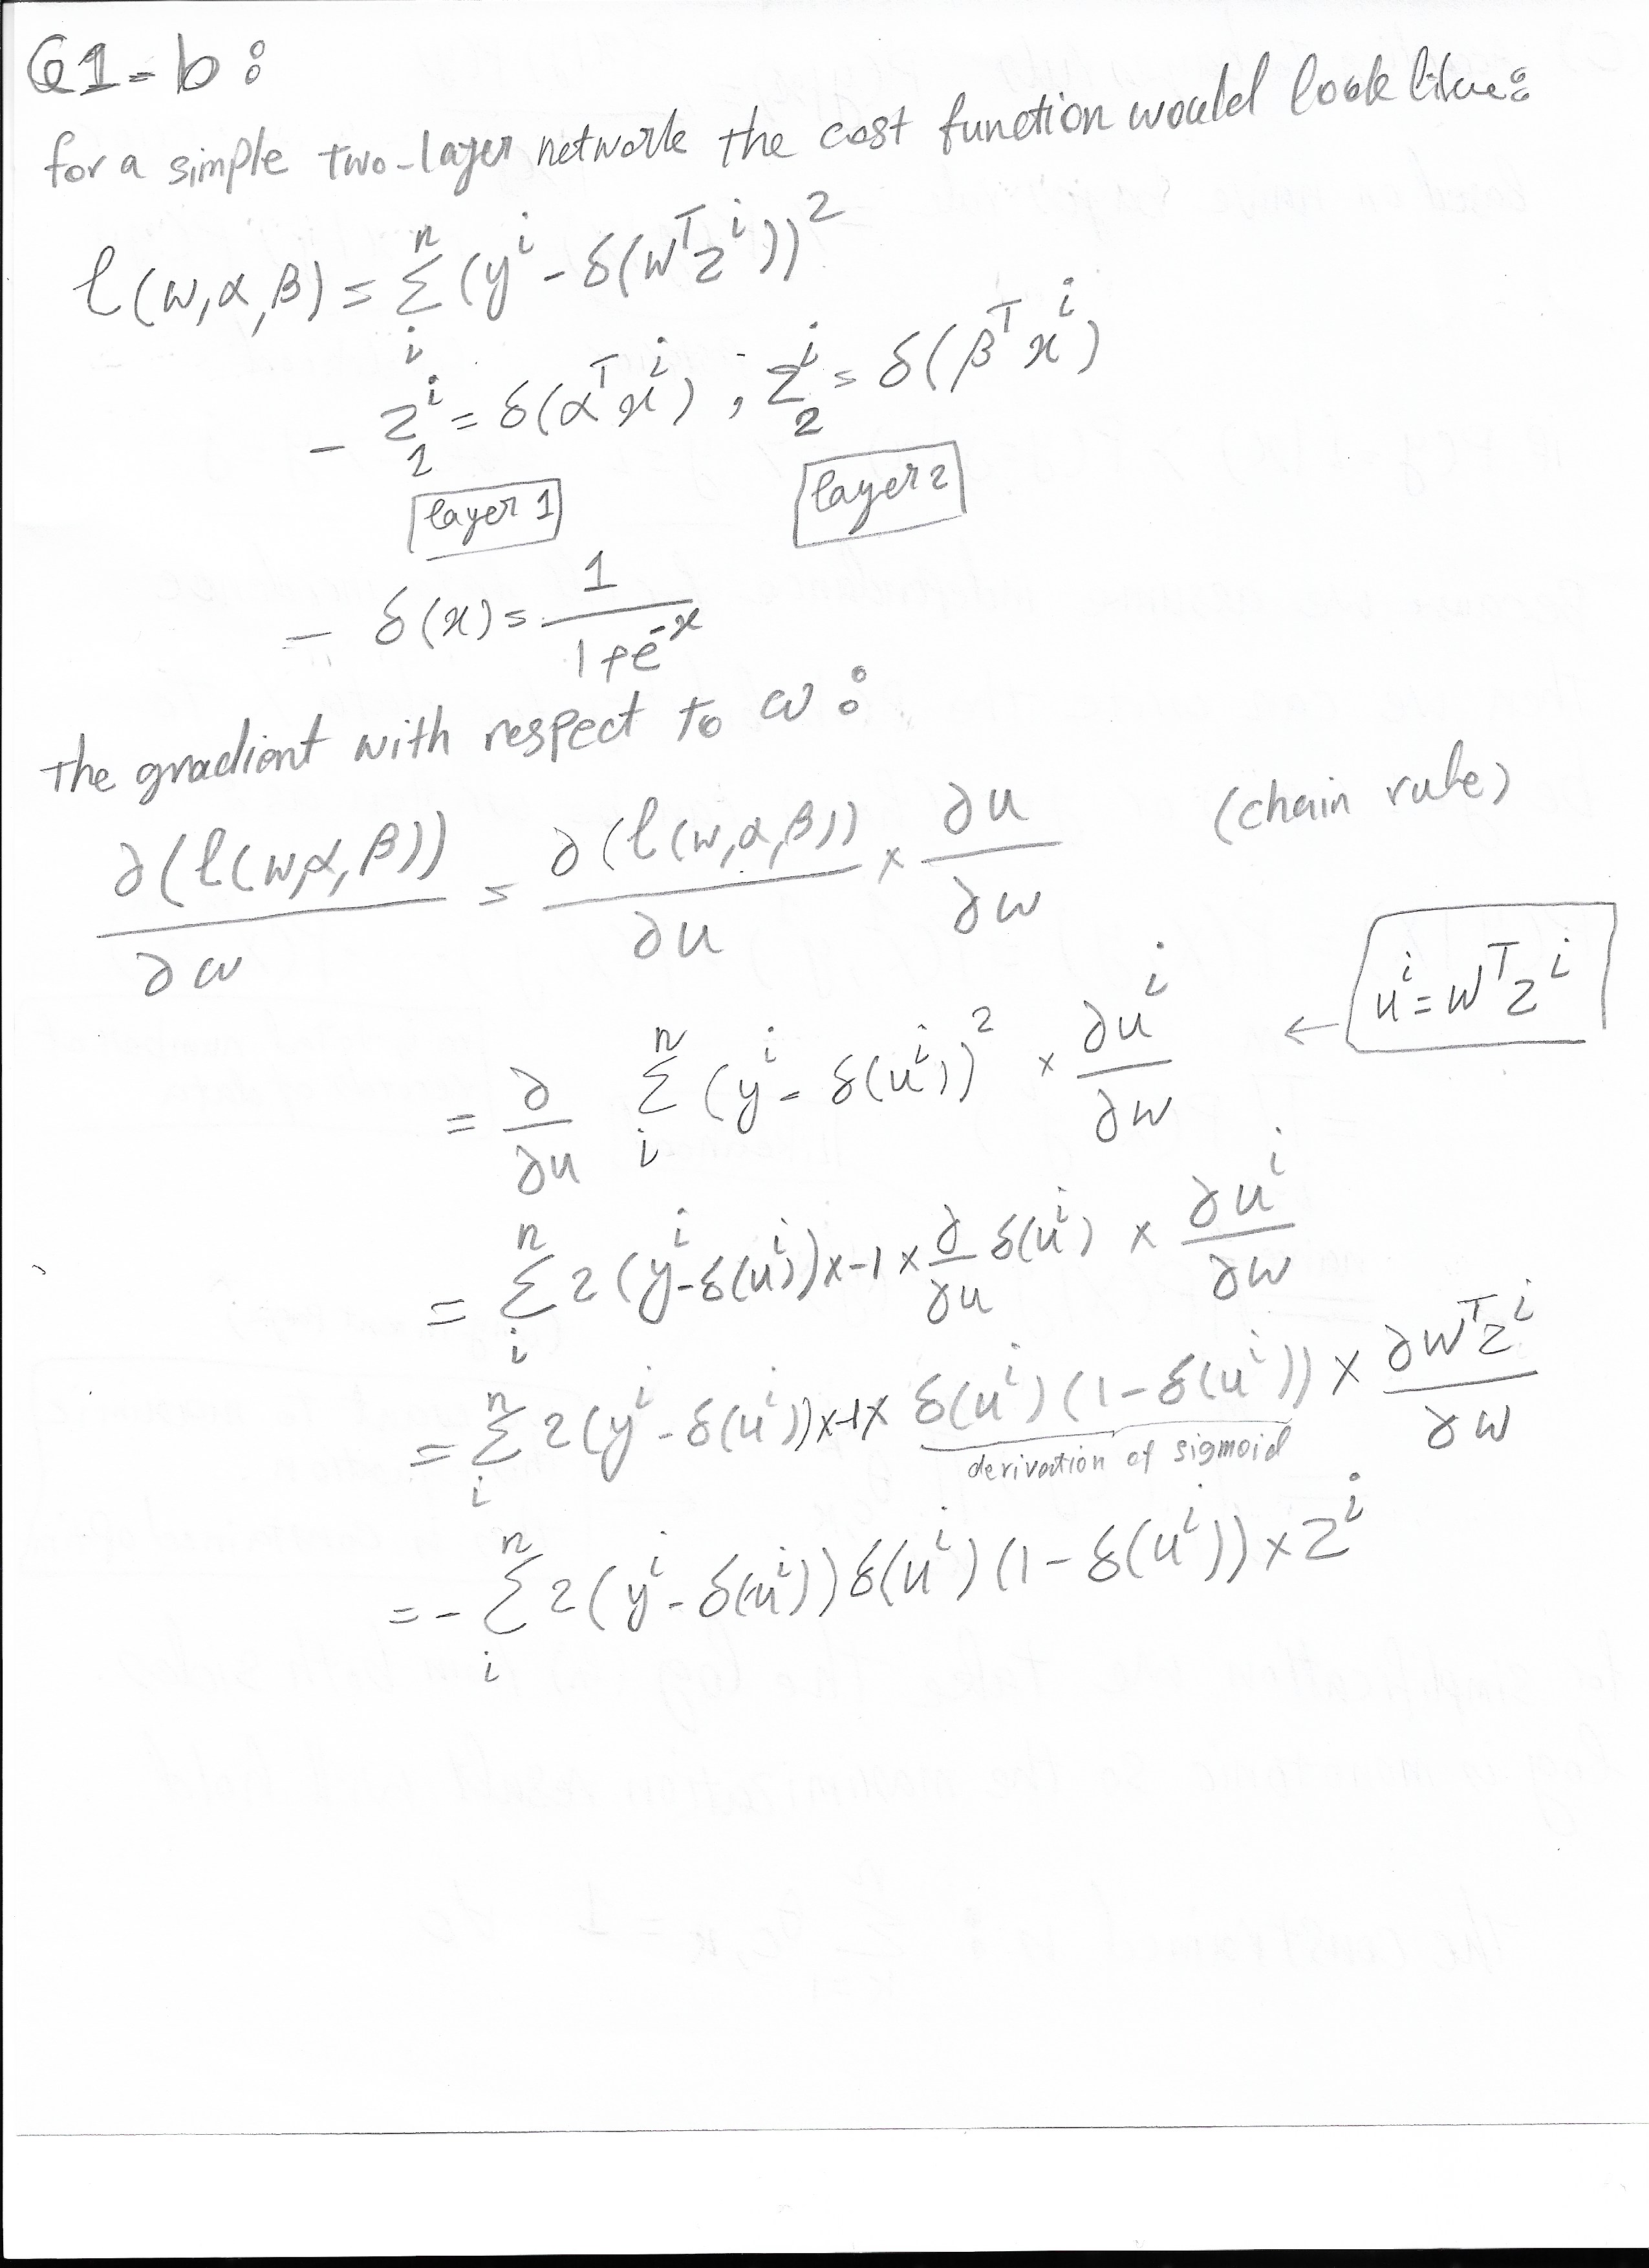 Q1-b:
for a simple two-layer network the cost function would look like:
l(w,α,β) = Σ_i^n (y^i - δ(w^T z^i))^2
- z_1^i = δ(α^T x^i) , z_2^i = δ(β^T x^i)
layer 1 layer 2
- δ(x) = 1 / (1+e^-x)
The gradient with respect to w:
∂(l(w,α,β)) / ∂w = ∂(l(w,α,β)) / ∂u × ∂u / ∂w (chain rule)
= ∂/∂u Σ_i^n (y^i - δ(u^i))^2 × ∂u^i / ∂w ← u^i = w^T z^i
= Σ_i^n 2(y^i - δ(u^i)) × -1 × ∂/∂u δ(u^i) × ∂u^i / ∂w
= Σ_i^n 2(y^i - δ(u^i)) × -1 × δ(u^i)(1 - δ(u^i)) × ∂w^T z^i / ∂w
derivation of sigmoid
= - Σ_i^n 2(y^i - δ(u^i)) δ(u^i)(1 - δ(u^i)) × z^i